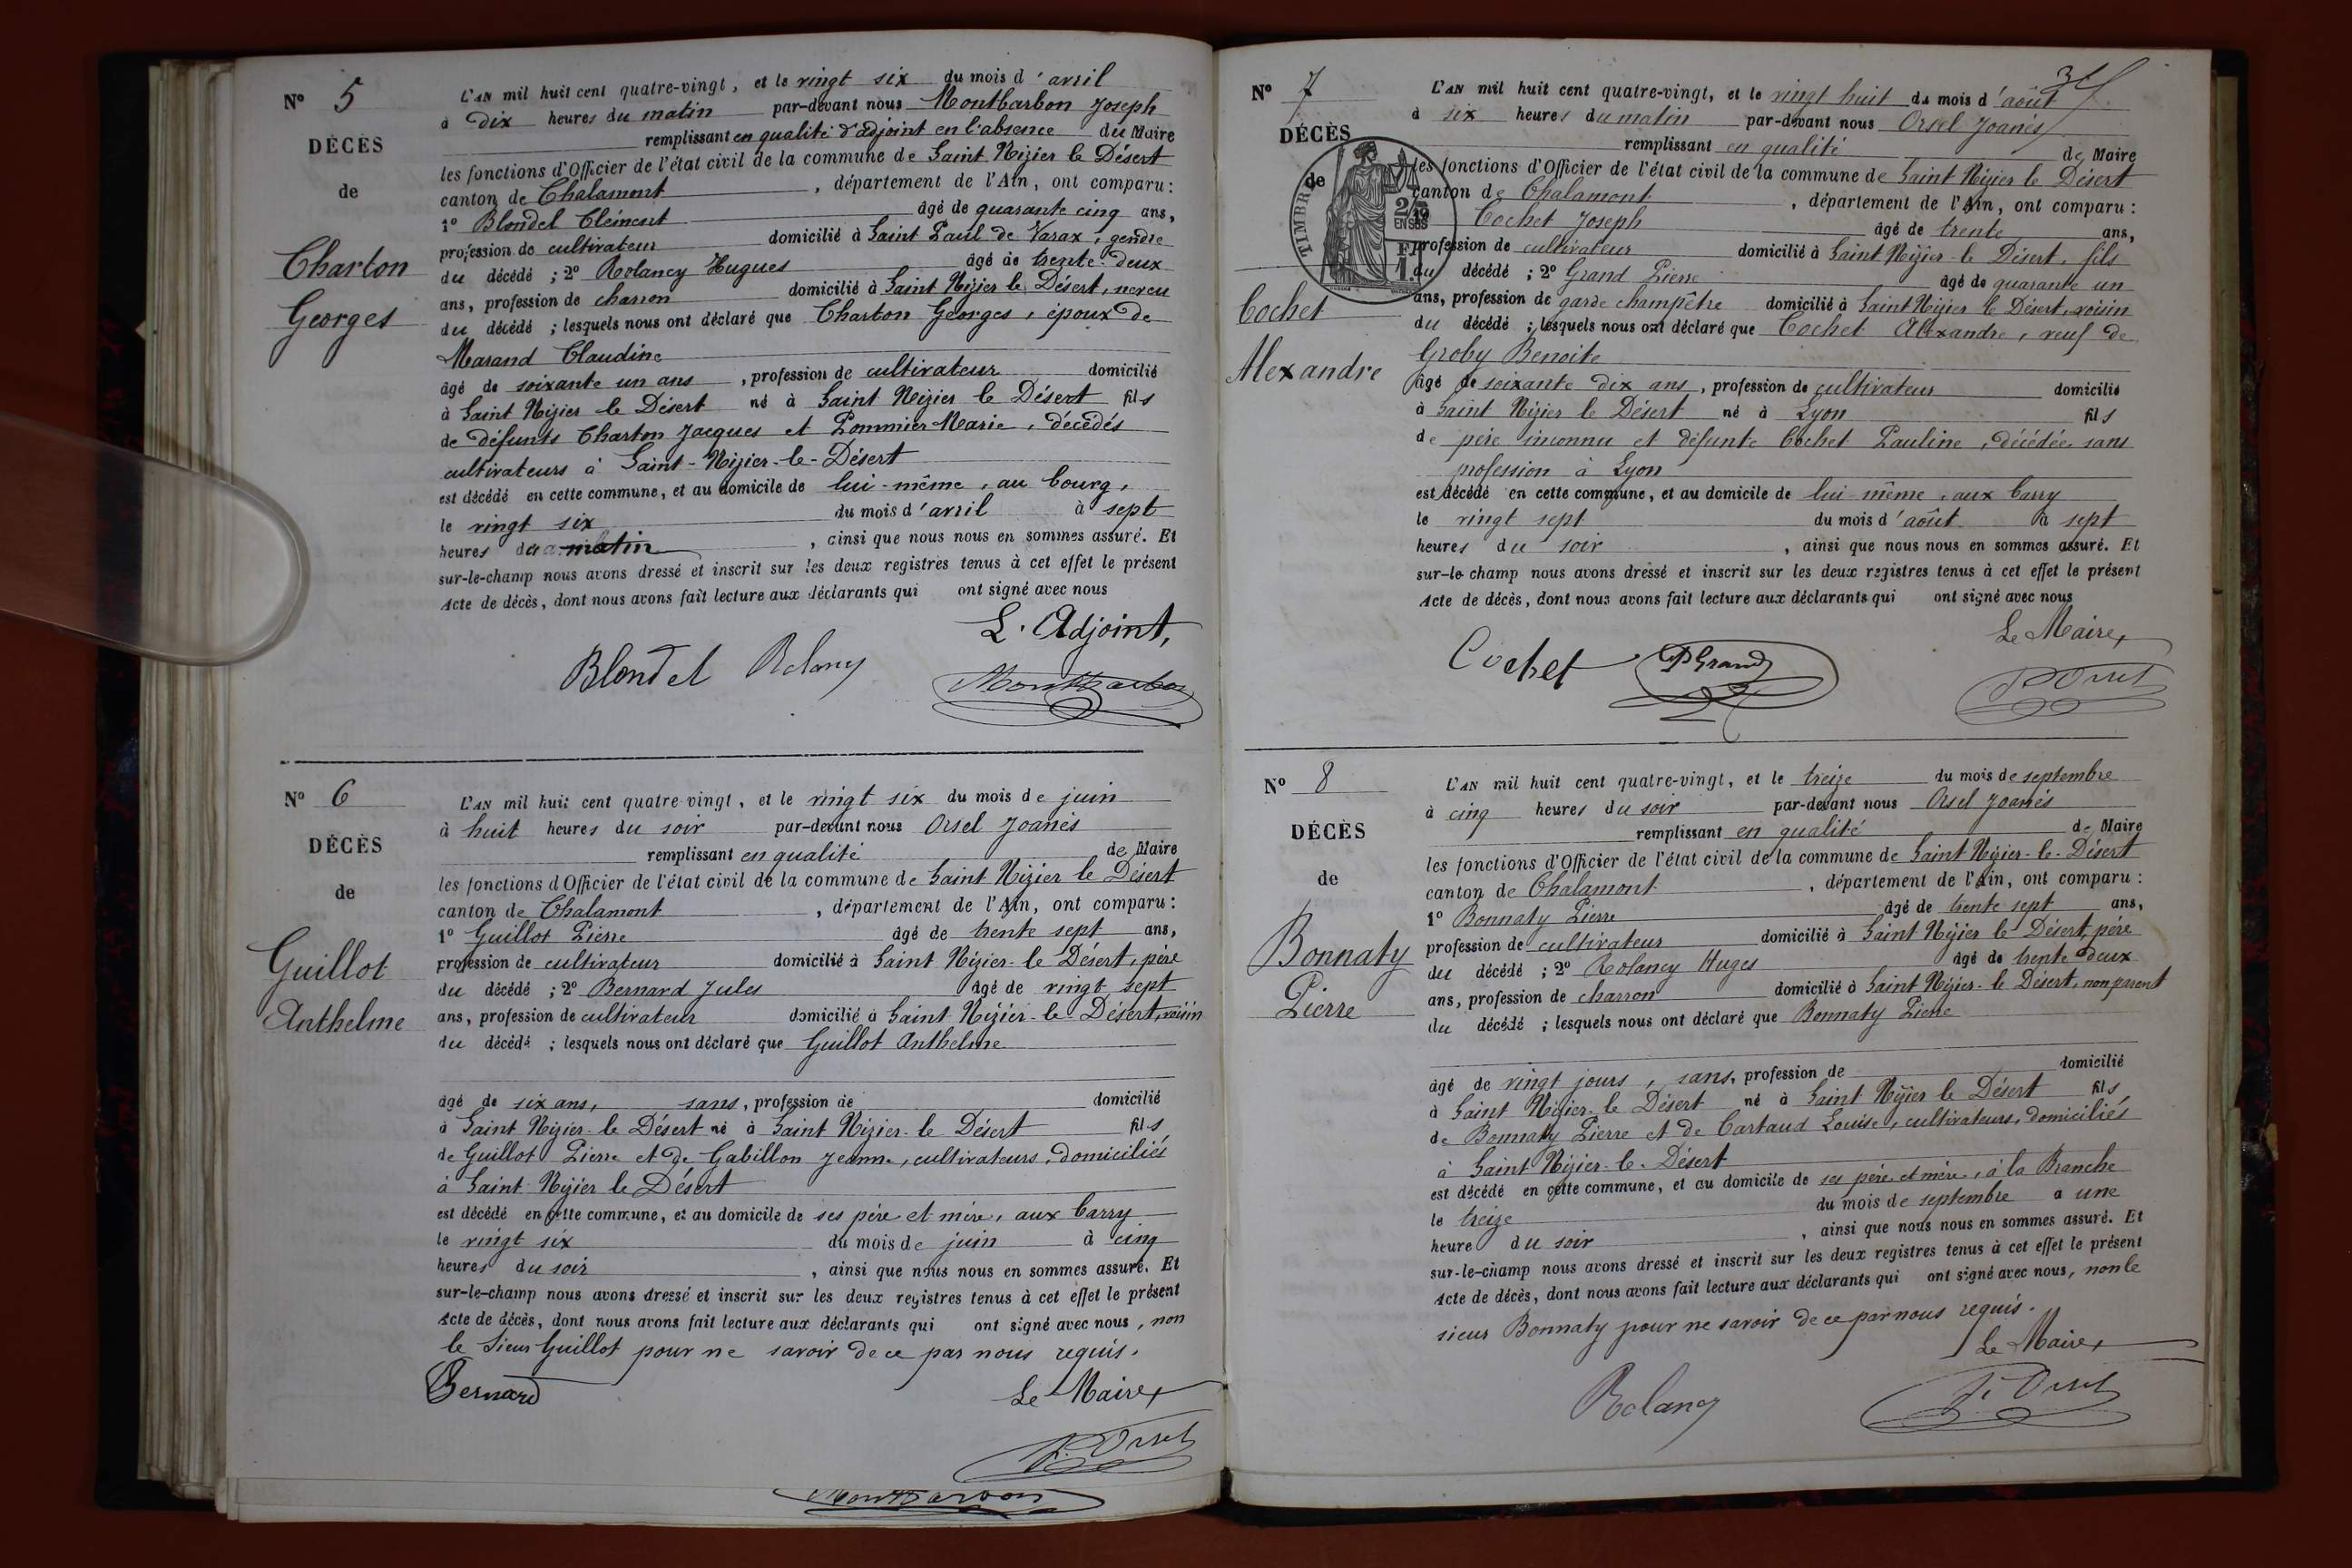 Nº 5
DÉCÈS
de
Charton
Georges
L'AN mil huit cent quatre-vingt, et le vingt six du mois d'avril
à dix heures du matin par-devant nous Montbarbon Joseph
remplissant en qualité d'adjoint en l'absence du Maire
les fonctions d'Officier de l'état civil de la commune de Saint Nizier le Désert
canton de Chalamont, département de l'Ain, ont comparu :
1º Blondel Clément âgé de quarante cinq ans,
profession de cultivateur domicilié à Saint Paul de Varax, gendre
du décédé ; 2º Rolancy Hugues âgé de trente-deux
ans, profession de charron domicilié à Saint Nizier le Désert, neveu
du décédé ; lesquels nous ont déclaré que Charton Georges, époux de
Marand Claudine
âgé de soixante un ans, profession de cultivateur domicilié
à Saint Nizier le Désert né à Saint Nizier le Désert fils
de défunts Charton Jacques et Pommier Marie, décédés
cultivateurs à Saint-Nizier-le-Désert
est décédé en cette commune, et au domicile de lui-même, au bourg,
le vingt six du mois d'avril à sept
heures du matin, ainsi que nous nous en sommes assuré. Et
sur-le-champ nous avons dressé et inscrit sur les deux registres tenus à cet effet le présent
Acte de décès, dont nous avons fait lecture aux déclarants qui ont signé avec nous
L'Adjoint,
Blondel Rolancy Montbarbon
Nº 6
DÉCÈS
de
Guillot
Anthelme
L'AN mil huit cent quatre-vingt, et le vingt six du mois de juin
à huit heures du soir par-devant nous Orsel Joanès
remplissant en qualité de Maire
les fonctions d'Officier de l'état civil de la commune de Saint Nizier le Désert
canton de Chalamont, département de l'Ain, ont comparu :
1º Guillot Pierre âgé de trente sept ans,
profession de cultivateur domicilié à Saint Nizier-le Désert, père
du décédé ; 2º Bernard Jules âgé de vingt sept
ans, profession de cultivateur domicilié à Saint Nizier-le-Désert, voisin
du décédé ; lesquels nous ont déclaré que Guillot Anthelme
âgé de six ans, sans, profession de domicilié
à Saint Nizier-le Désert né à Saint Nizier-le Désert fils
de Guillot Pierre et de Gabillon Jeanne, cultivateurs, domiciliés
à Saint Nizier le Désert
est décédé en cette commune, et au domicile de ses père et mère, aux Carry
le vingt six du mois de juin à cinq
heures du soir, ainsi que nous nous en sommes assuré. Et
sur-le-champ nous avons dressé et inscrit sur les deux registres tenus à cet effet le présent
Acte de décès, dont nous avons fait lecture aux déclarants qui ont signé avec nous, non
le sieur Guillot pour ne savoir de ce par nous requis.
Bernard Le Maire,
J. Orsel
Montbarbon
Nº 7
DÉCÈS
de
TIMBRE
2/10
EN SUS
1F
Cochet
Alexandre
L'AN mil huit cent quatre-vingt, et le vingt huit du mois d'août
à six heures du matin par-devant nous Orsel Joanès
remplissant en qualité de Maire
les fonctions d'Officier de l'état civil de la commune de Saint Nizier le Désert
canton de Chalamont, département de l'Ain, ont comparu :
1º Cochet Joseph âgé de trente ans,
profession de cultivateur domicilié à Saint Nizier-le Désert, fils
du décédé ; 2º Grand Pierre âgé de quarante un
ans, profession de garde champêtre domicilié à Saint Nizier le Désert, voisin
du décédé ; lesquels nous ont déclaré que Cochet Alexandre, veuf de
Groby Benoite
âgé de soixante dix ans, profession de cultivateur domicilié
à Saint Nizier le Désert né à Lyon fils
de père inconnu et défunte Cochet Pauline, décédée sans
profession à Lyon
est décédé en cette commune, et au domicile de lui-même, aux Carry
le vingt sept du mois d'août à sept
heures du soir, ainsi que nous nous en sommes assuré. Et
sur-le-champ nous avons dressé et inscrit sur les deux registres tenus à cet effet le présent
Acte de décès, dont nous avons fait lecture aux déclarants qui ont signé avec nous
Le Maire,
Cochet P Grand J. Orsel
Nº 8
DÉCÈS
de
Bonnaty
Pierre
L'AN mil huit cent quatre-vingt, et le treize du mois de septembre
à cinq heures du soir par-devant nous Orsel Joanès
remplissant en qualité de Maire
les fonctions d'Officier de l'état civil de la commune de Saint Nizier-le-Désert
canton de Chalamont, département de l'Ain, ont comparu :
1º Bonnaty Pierre âgé de trente sept ans,
profession de cultivateur domicilié à Saint Nizier le Désert, père
du décédé ; 2º Rolancy Huges âgé de trente deux
ans, profession de charron domicilié à Saint Nizier-le Désert, non parent
du décédé ; lesquels nous ont déclaré que Bonnaty Pierre
âgé de vingt jours, sans, profession de domicilié
à Saint Nizier-le Désert né à Saint Nizier le Désert fils
de Bonnaty Pierre et de Cartaud Louise, cultivateurs, domiciliés
à Saint Nizier-le-Désert
est décédé en cette commune, et au domicile de ses père et mère, à la Branche
le treize du mois de septembre à une
heure du soir, ainsi que nous nous en sommes assuré. Et
sur-le-champ nous avons dressé et inscrit sur les deux registres tenus à cet effet le présent
Acte de décès, dont nous avons fait lecture aux déclarants qui ont signé avec nous, non le
sieur Bonnaty pour ne savoir de ce par nous requis.
Le Maire,
Rolancy J. Orsel